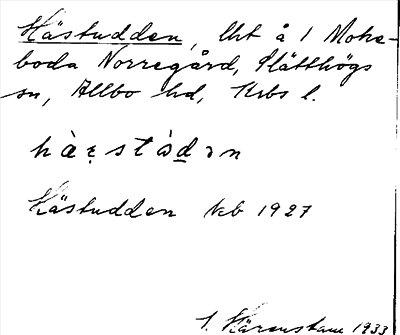 Hästudden, lht å 1 Moha-
boda Norregård, Slätthögs
sn, Allbo hd, Krbs l.
hà̀ẹstȧ̀dən
Hästudden Kcb 1927
1933